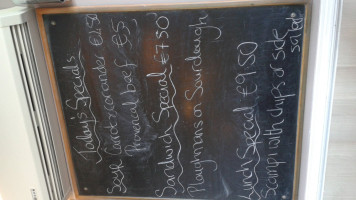 Today's Specials
Soup Carrot & coriander £4.50
Provencial beef £5
Sandwich Special £7.50
Ploughmans on Sourdough
Lunch Special £9.50
Scampi with chips & side
salad